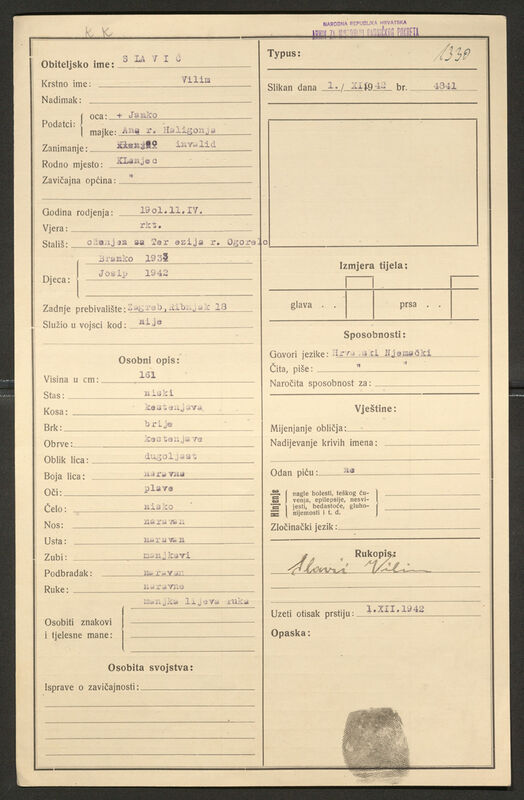 K K
NARODNA REPUBLIKA HRVATSKA
ARHIV ZA HISTORIJU RADNIČKOG POKRETA
1330
Obiteljsko ime: SLAVIĆ
Krstno ime: Vilim
Nadimak:
Podatci: oca: + Janko
majke: Ana r. Haligonja
Zanimanje: invalid
Rodno mjesto: KLanjec
Zavičajna općina: "
Godina rodjenja: 19o1.11.IV.
Vjera: rkt.
Stališ: oženjen sa Ter ezija r. Ogorelo
Djeca: Branko 1933
Josip 1942
Zadnje prebivalište: Zagreb, Ribnjak 18
Služio u vojsci kod: nije
Osobni opis:
Visina u cm: 161
Stas: niski
Kosa: kestenjava
Brk: brije
Obrve: kestenjave
Oblik lica: dugoljast
Boja lica: naravna
Oči: plave
Čelo: nisko
Nos: naravan
Usta: naravan
Zubi: manjkavi
Podbradak: naravan
Ruke: naravne
Osobiti znakovi i tjelesne mane: manjka lijeva ruka
Osobita svojstva:
Isprave o zavičajnosti:
Typus:
Slikan dana 1./ XII 1942 br. 4841
Izmjera tijela:
glava . . prsa . .
Sposobnosti:
Govori jezike: Hrvatski Njemački
Čita, piše: " "
Naročita sposobnost za:
Vještine:
Mijenjanje obličja:
Nadijevanje krivih imena:
Odan piću: ne
Hinjenje
nagle bolesti, teškog ču-
venja, epilepsije, nesvi-
jesti, bedastoće, gluho-
nijemosti i t. d.
Zločinački jezik:
Rukopis:
Slavić Vilim
Uzeti otisak prstiju: 1.XII.1942
Opaska: